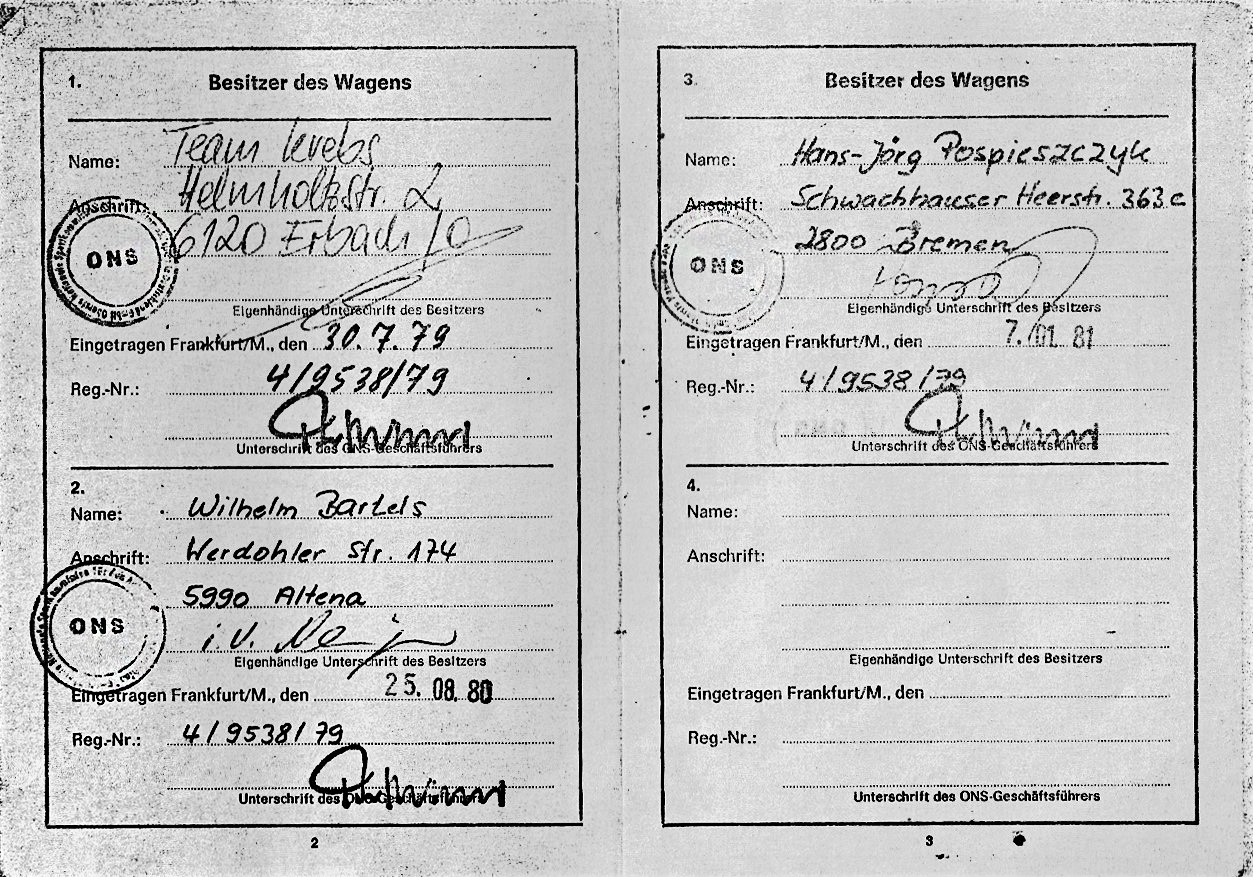 1.
Besitzer des Wagens
Name: Team Krebs
Anschrift: Helmholtzstr. 2
6120 Erbach/O
ONS
Eigenhändige Unterschrift des Besitzers
Eingetragen Frankfurt/M., den 30.7.79
Reg.-Nr.: 4/9538/79
Unterschrift des ONS-Geschäftsführers
2.
Name: Wilhelm Bartels
Anschrift: Werdohler Str. 174
5990 Altena
ONS
i.V.
Eigenhändige Unterschrift des Besitzers
Eingetragen Frankfurt/M., den 25. 08. 80
Reg.-Nr.: 4/9538/79
Unterschrift des ONS-Geschäftsführers
2
3.
Besitzer des Wagens
Name: Hans-Jörg Pospieszczyk
Anschrift: Schwachhauser Heerstr. 363c
2800 Bremen
ONS
Eigenhändige Unterschrift des Besitzers
Eingetragen Frankfurt/M., den 7. 01. 81
Reg.-Nr.: 4/9538/79
Unterschrift des ONS-Geschäftsführers
4.
Name:
Anschrift:
Eigenhändige Unterschrift des Besitzers
Eingetragen Frankfurt/M., den
Reg.-Nr.:
Unterschrift des ONS-Geschäftsführers
3